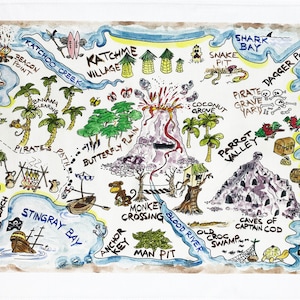 KATCHOO CREEK
KATCHME
VILLAGE
SHARK
BAY
BEACON
POINT
SNAKE
PIT
DAGGER
BANANA
COCONUT
GROVE
PIRATE
GRAVE
YARD
PIRATE PATH
BUTTERFLY
PARROT
VALLEY
MONKEY
CROSSING
STINGRAY BAY
BLOOD RIVER
ANCHOR
KEY
MAN PIT
OLD
CROC
SWAMP
CAVES OF
CAPTAIN COD